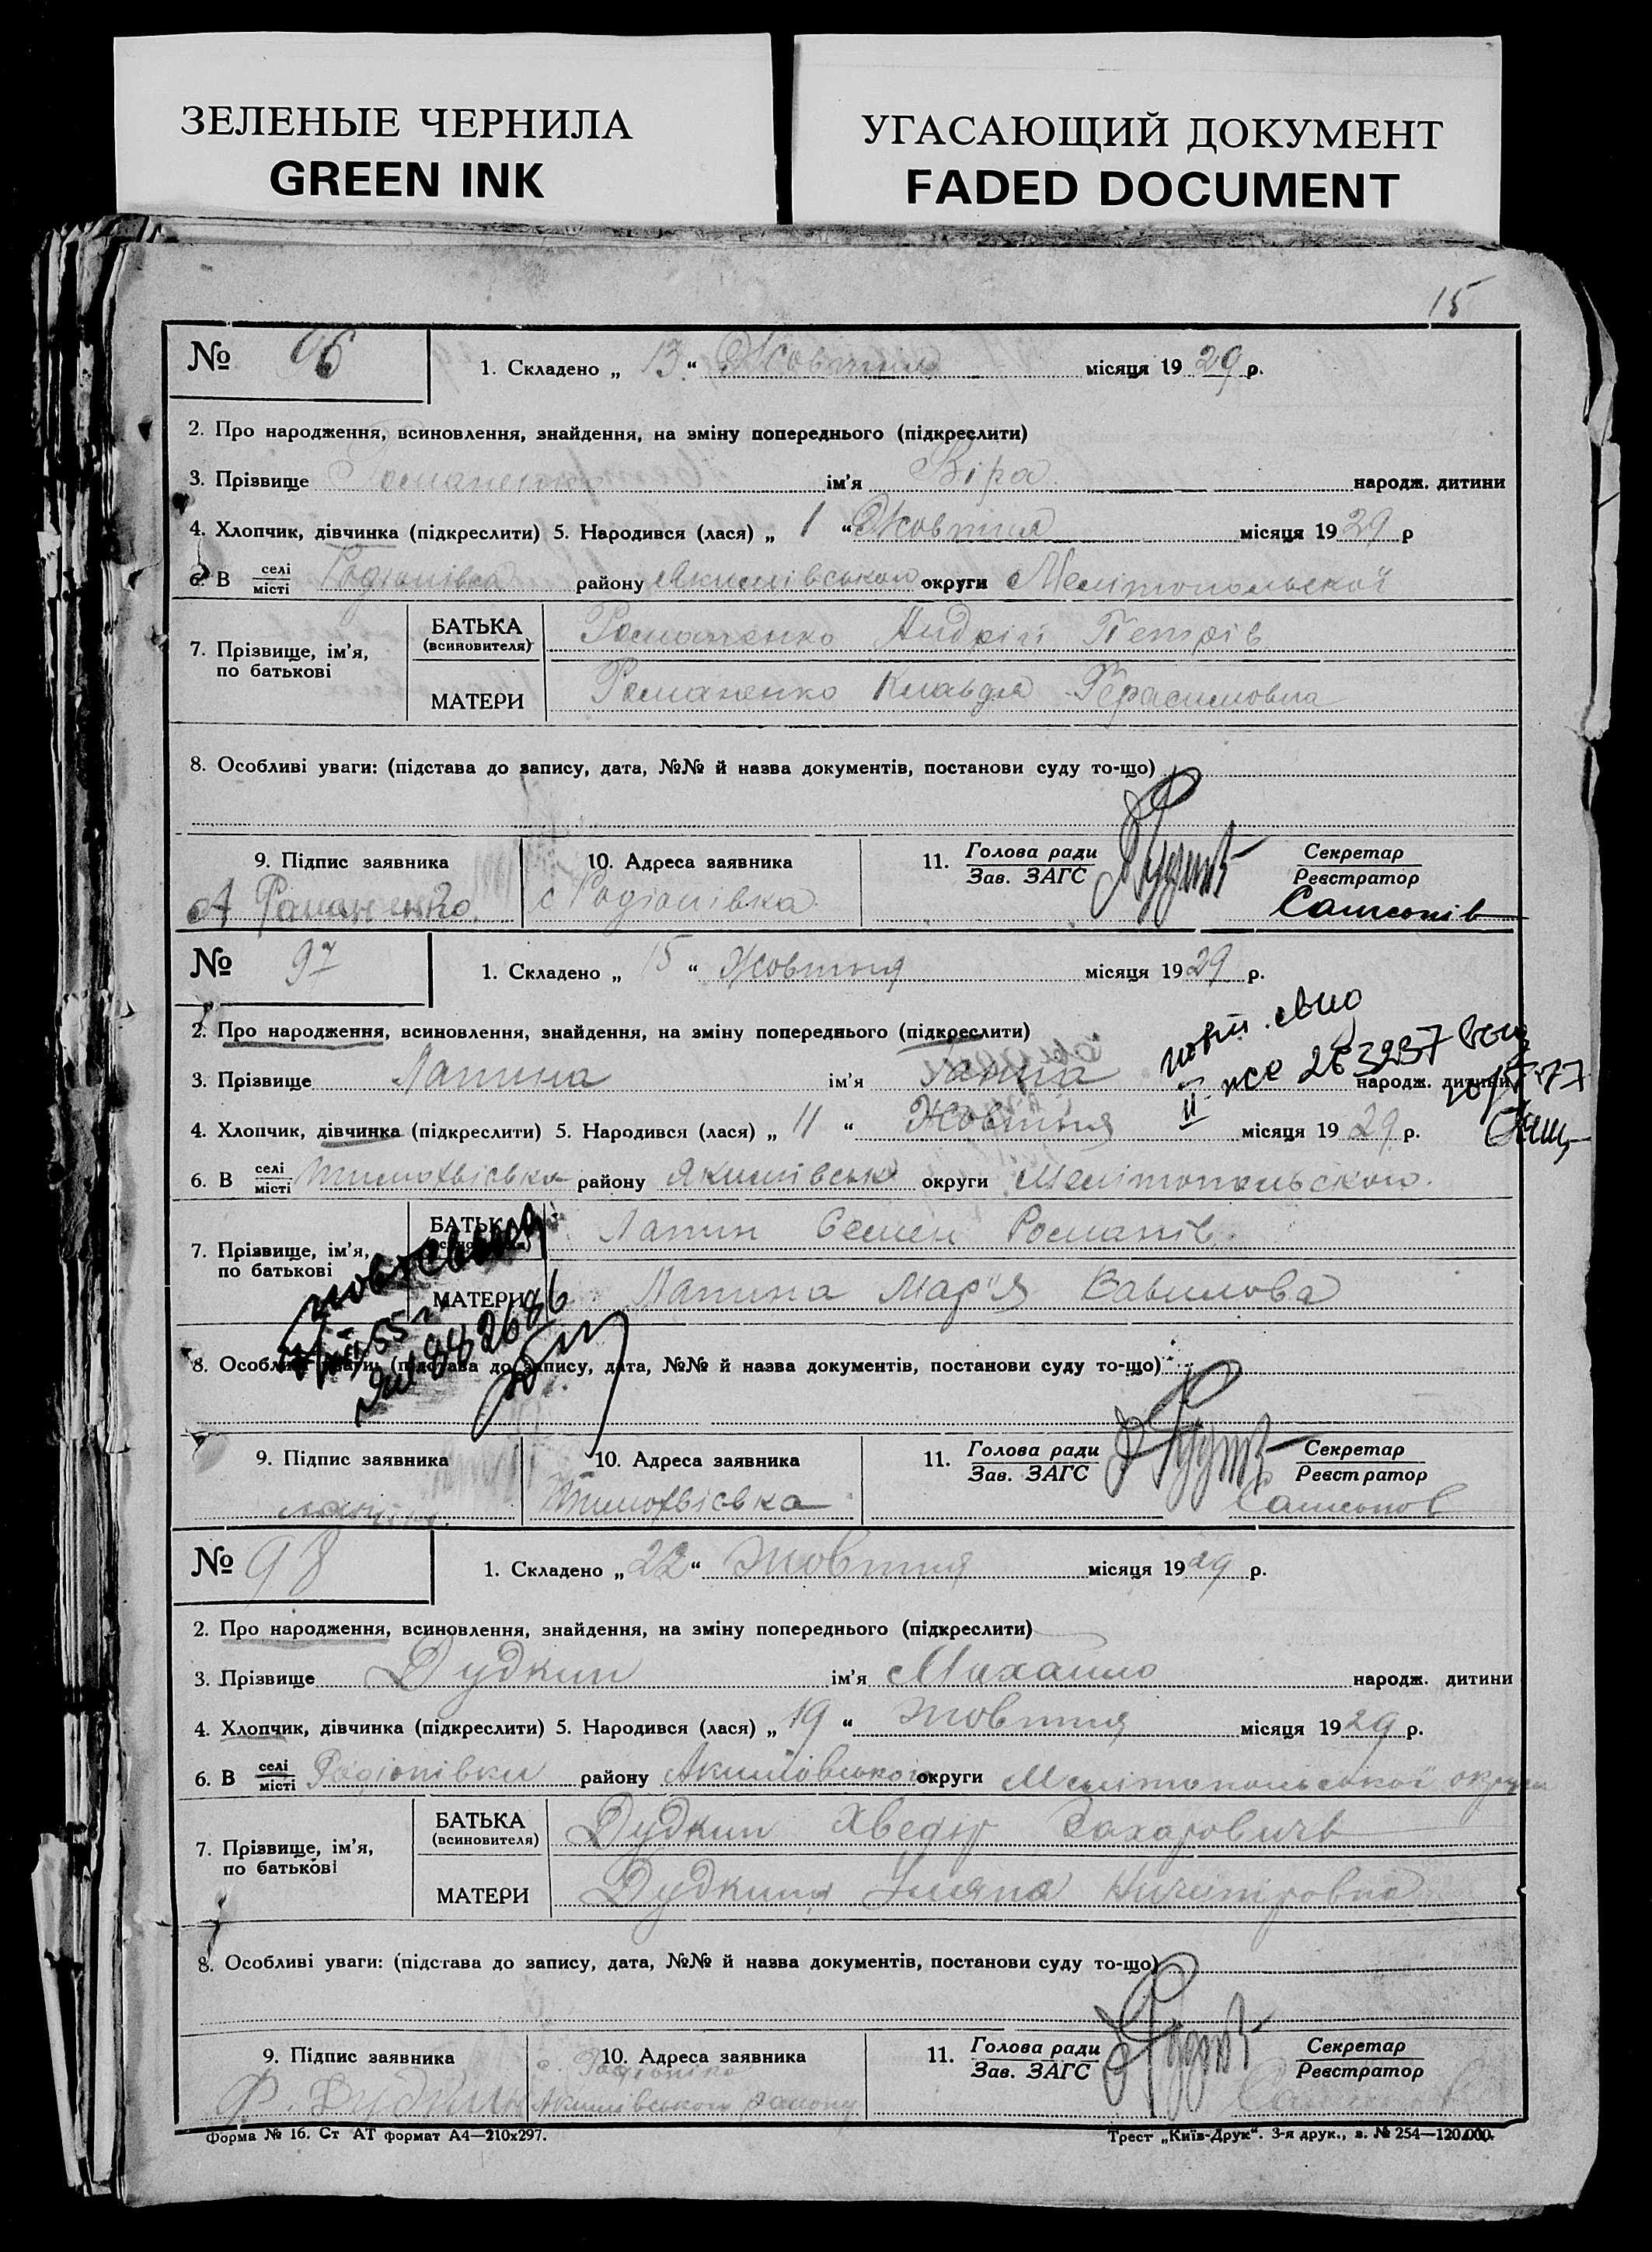 ЗЕЛЕНЫЕ ЧЕРНИЛА
GREEN INK
УГАСАЮЩИЙ ДОКУМЕНТ
FADED DOCUMENT
15
№ 96 1. Складено „ 13 “ Жовтня місяця 1929 р.
2. Про народження, всиновлення, знайдення, на зміну попереднього (підкреслити)
3. Прізвище Романенко ім'я Віра народж. дитини
4. Хлопчик, дівчинка (підкреслити) 5. Народився (лася) „ 1 “ Жовтня місяця 1929 р
6. В селі місті Родіонівка району Якимівського округи Мелітопольської
7. Прізвище, ім'я, по батькові
БАТЬКА (всиновителя) Романенко Андрій Петрів
МАТЕРИ Романенко Клавдія Герасимовна
8. Особливі уваги: (підстава до запису, дата, №№ й назва документів, постанови суду то-що)
9. Підпис заявника 10. Адреса заявника 11. Голова ради Зав. ЗАГС Секретар Реєстратор
А Романенко с Родіонівка Самсонів
№ 97 1. Складено „ 15 “ Жовтня місяця 1929 р.
2. Про народження, всиновлення, знайдення, на зміну попереднього (підкреслити)
3. Прізвище Лапина ім'я Ганна народж. дитини
II-ЖС 263237
4. Хлопчик, дівчинка (підкреслити) 5. Народився (лася) „ 11 “ Жовтня місяця 1929 р.
6. В селі місті Тимофвіська району Якимівськ округи Мелітопольского
7. Прізвище, ім'я, по батькові
БАТЬКА Лапин Семен Романів
МАТЕРИ Лапина Мар'я Вавилова
8. Особливі уваги: (підстава до запису, дата, №№ й назва документів, постанови суду то-що)
9. Підпис заявника 10. Адреса заявника 11. Голова ради Зав. ЗАГС Секретар Реєстратор
Тимофвіська Самсонов
№ 98 1. Складено „ 22 “ Жовтня місяця 1929 р.
2. Про народження, всиновлення, знайдення, на зміну попереднього (підкреслити)
3. Прізвище Дудкин ім'я Михаило народж. дитини
4. Хлопчик, дівчинка (підкреслити) 5. Народився (лася) „ 19 “ Жовтня місяця 1929 р.
6. В селі місті Родіонівки району Акимовського округи Мелітопольської округи
7. Прізвище, ім'я, по батькові
БАТЬКА (всиновителя) Дудкин Хведір Захаровичь
МАТЕРИ Дудкина Уляна Ничипровна
8. Особливі уваги: (підстава до запису, дата, №№ й назва документів, постанови суду то-що)
9. Підпис заявника 10. Адреса заявника 11. Голова ради Зав. ЗАГС Секретар Реєстратор
Ф. Дудкин Якимівського району
Форма № 16. Ст АТ формат А4—210х297. Трест „Київ-Друк“. 3-я друк., з. № 254—120.000.